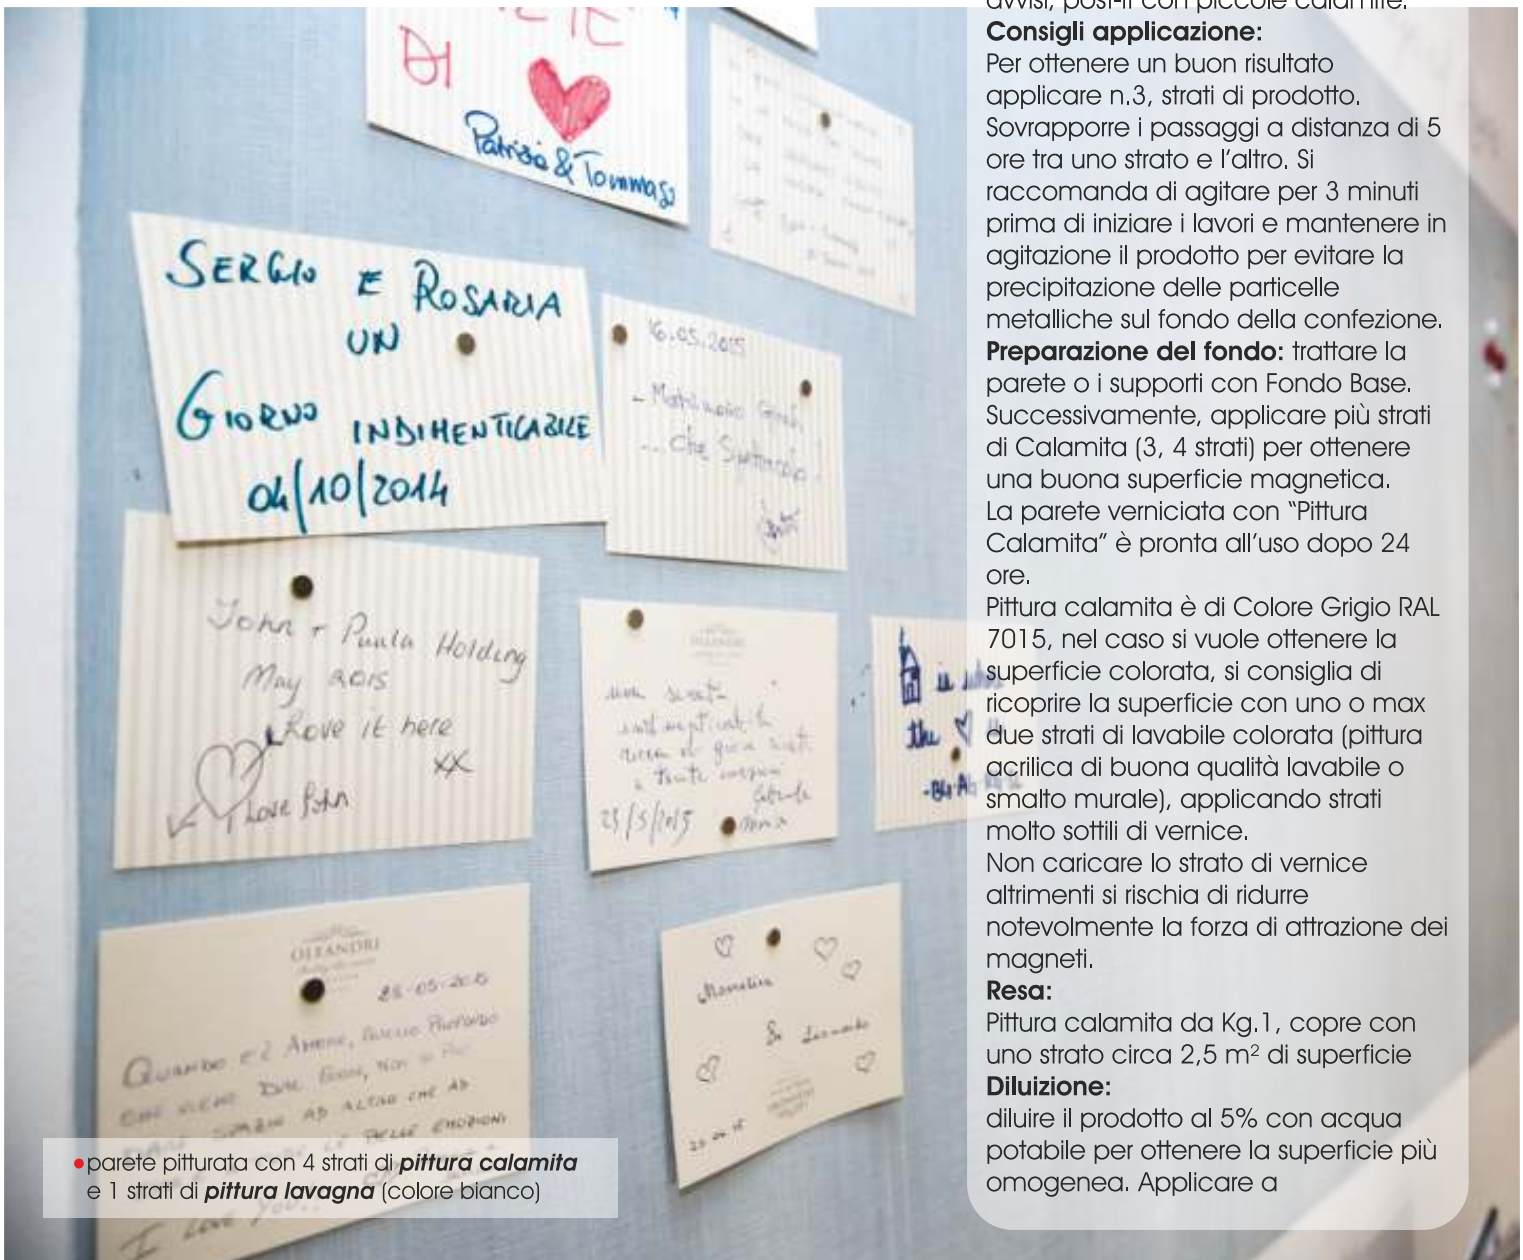 DI
Patrizia & Tommaso
SERGIO E ROSARIA
UN
GIORNO INDIMENTICABILE
04/10/2014
16.05.2015
- Matrimonio
... che Spettacolo
John + Paula Holding
May 2015
Love it here
XX
I Love John
OLEANDRI
23/5/2015
the
OLEANDRI
28-05-2015
QUANDO C'È AMORE, QUELLO PROFONDO
CHE VIENE DAL CUORE, NON SI PUÒ
DARE SPAZIO AD ALTRO CHE AD
DELLE EMOZIONI
I LOVE YOU
&
Leonardo
avvisi, post-it con piccole calamite.
Consigli applicazione:
Per ottenere un buon risultato
applicare n.3, strati di prodotto.
Sovrapporre i passaggi a distanza di 5
ore tra uno strato e l'altro. Si
raccomanda di agitare per 3 minuti
prima di iniziare i lavori e mantenere in
agitazione il prodotto per evitare la
precipitazione delle particelle
metalliche sul fondo della confezione.
Preparazione del fondo: trattare la
parete o i supporti con Fondo Base.
Successivamente, applicare più strati
di Calamita (3, 4 strati) per ottenere
una buona superficie magnetica.
La parete verniciata con “Pittura
Calamita” è pronta all'uso dopo 24
ore.
Pittura calamita è di Colore Grigio RAL
7015, nel caso si vuole ottenere la
superficie colorata, si consiglia di
ricoprire la superficie con uno o max
due strati di lavabile colorata (pittura
acrilica di buona qualità lavabile o
smalto murale), applicando strati
molto sottili di vernice.
Non caricare lo strato di vernice
altrimenti si rischia di ridurre
notevolmente la forza di attrazione dei
magneti.
Resa:
Pittura calamita da Kg.1, copre con
uno strato circa 2,5 m² di superficie
Diluizione:
diluire il prodotto al 5% con acqua
potabile per ottenere la superficie più
omogenea. Applicare a
•parete pitturata con 4 strati di pittura calamita
e 1 strati di pittura lavagna (colore bianco)